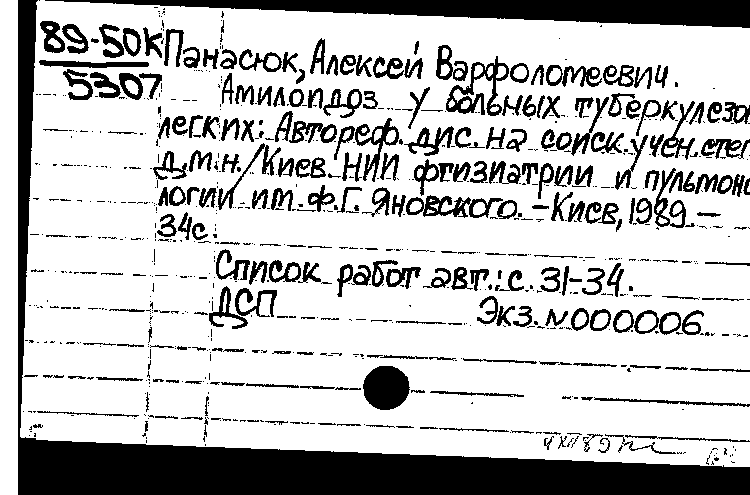 89-50К Панасюк, Алексей Варфоломеевич.
5307 Амилоидоз у больных туберкулезо
легких: Автореф. дис. на соиск. учен. степ
д.м.н./Киев. НИИ фтизиатрии и пульмоно
логии им. Ф.Г. Яновского. – Киев, 1989. –
34с.
Список работ авт.: с. 31-34.
ДСП Экз. N000006.